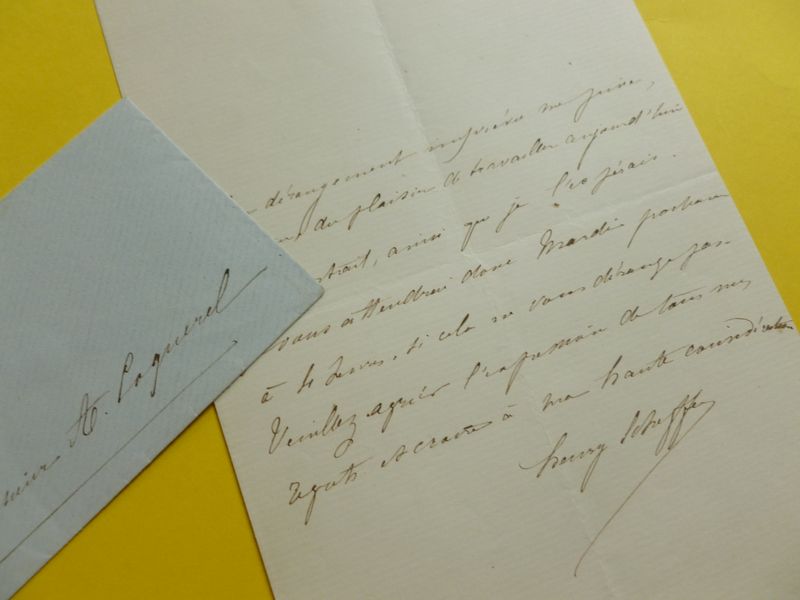 dérangement imprévu me prive,
du plaisir de travailler aujourd'hui
trait, ainsi que je l'espérais.
vous attendrai donc Mardi prochain
à 4 heures, si cela ne vous dérange pas
Veuillez agréer l'expression de tous mes
regrets et croire à ma haute considération
henry Scheffer
sieur A. Coquerel